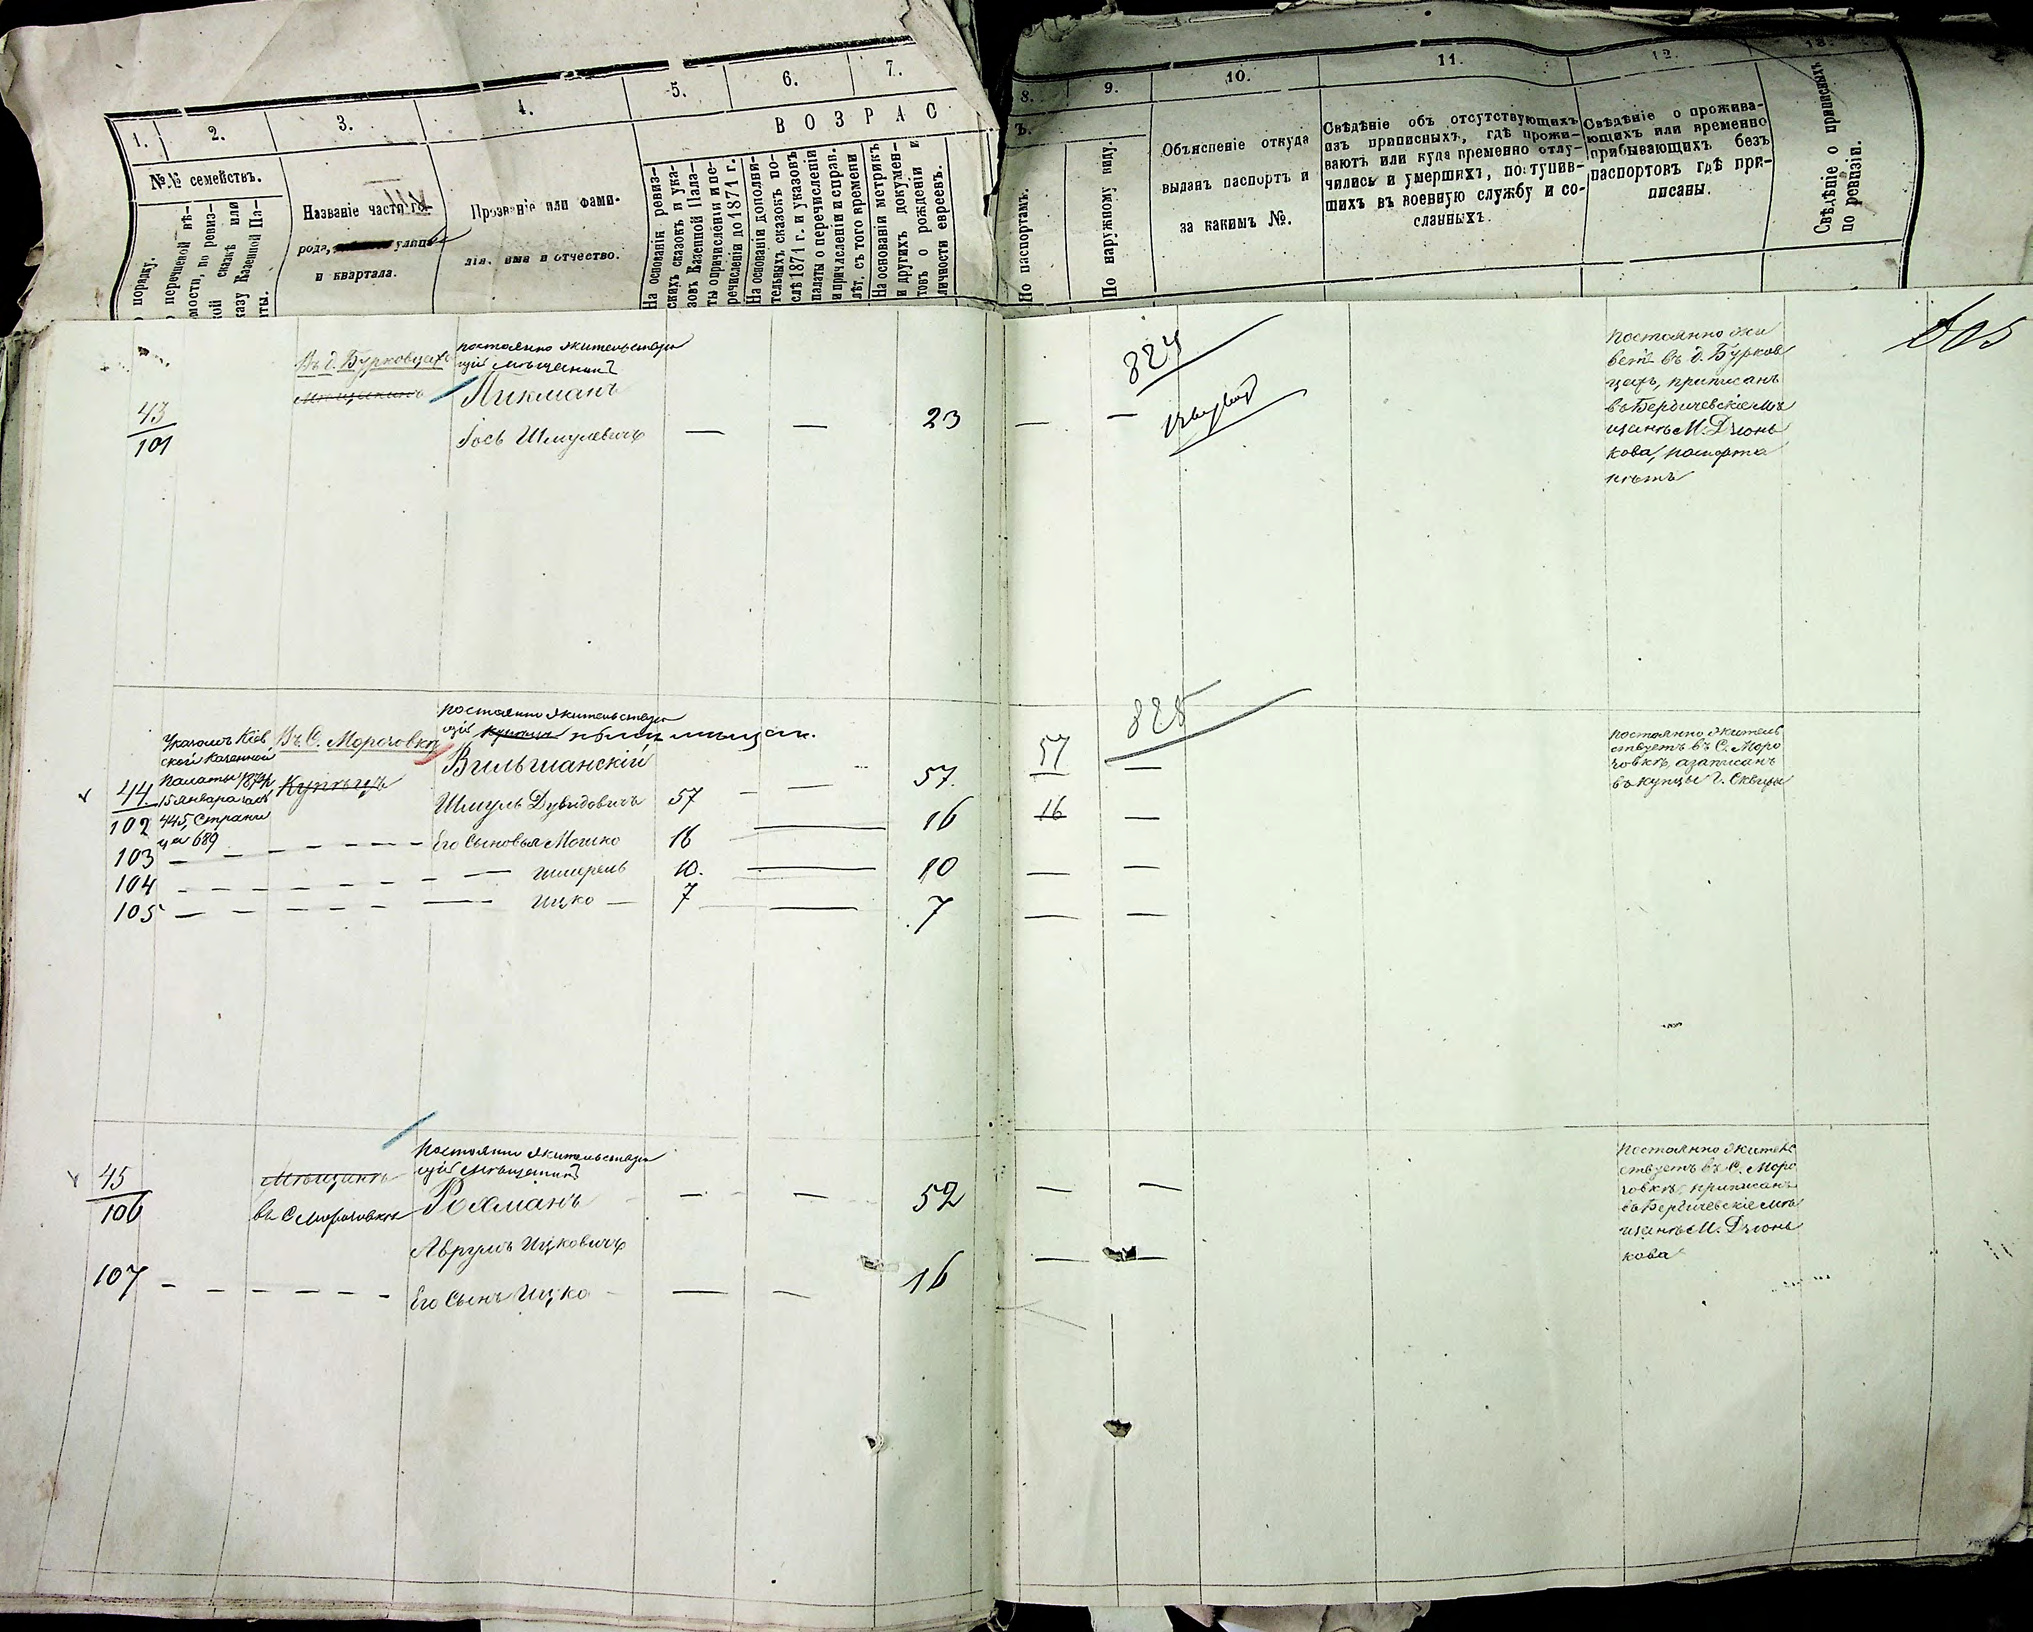 1.
2.
3.
4.
5.
6.
7.
ВОЗРАС
№.№ семействъ.
порядку.
перечневой вѣ-
домости, по ревиз-
ской сказкѣ или
указу Казенной Па-
латы.
Названіе части го-
рода, улицы
и квартала.
VIII
Прозваніе или фами-
лія, имя и отчество.
На основаніи ревиз-
скихъ сказокъ и ука-
зовъ Казенной Пала-
ты о причисленіи и пе-
речисленіи до 1871 г.
На основаніи дополни-
тельныхъ сказокъ по-
слѣ 1871 г. и указовъ
палаты о перечисленіи
и причисленіи и справ.
лѣт, съ того времени
На основаніи метрикъ
и другихъ докумен-
товъ о рожденіи и
личности евреевъ.
8.
9.
10.
11.
12.
13.
Ъ.
По паспортамъ.
По наружному виду.
Объясненіе откуда
выданъ паспортъ и
за какимъ №.
Свѣдѣніе объ отсутствующихъ
изъ приписныхъ, гдѣ прожи-
ваютъ или куда временно отлу-
чились и умершихъ, поступив-
шихъ въ военную службу и со-
сланныхъ.
Свѣдѣніе о прожива-
ющихъ или временно
прибывающихъ безъ
паспортовъ гдѣ при-
писаны.
Свѣдѣніе о приписныхъ
по ревизіи.
605
43
101
Въ д. Бурковцахъ
Мѣщанинъ
постоянно жительствую
щій мѣщанинъ
Пикманъ
Іось Шмулевичъ
— — 23 — —
824
Постоянно жи
ветъ въ д. Бурков
цахъ, приписанъ
въ Бердичевскіе мѣ
щане М. Дзюнь
кова, паспорта
нѣтъ
44
102
Указомъ Кіев
ской Казенной
Палаты 187
15 Января за №
445, Страни
ца 689
Въ С. Морозовкѣ
Купецъ
постоянно жительствую
щій купецъ
Вильшанскій
Шмуль Дувидовичъ 57 — — 57. 57 —
825
103 — Его Сыновья Мошко 16 — 16 16 —
104 — Шмерель 10. — 10 — —
105 — Ицко — 7 — 7 — —
постоянно житель
ствуетъ въ С. Моро
зовкѣ, а записанъ
въ купцы г. Сквиры
45
106
Мѣщанинъ
въ С Морозовкѣ
Постоянно жительствую
щій мѣщанинъ
Рохманъ
Аврумъ Ицковичъ
— — 52 — —
107 — Его Сынъ Ицко — — 16 — —
Постоянно житель
ствуетъ въ С. Моро
зовкѣ, приписанъ
въ Бердичевскіе мѣ
щане М. Дзюнь
кова